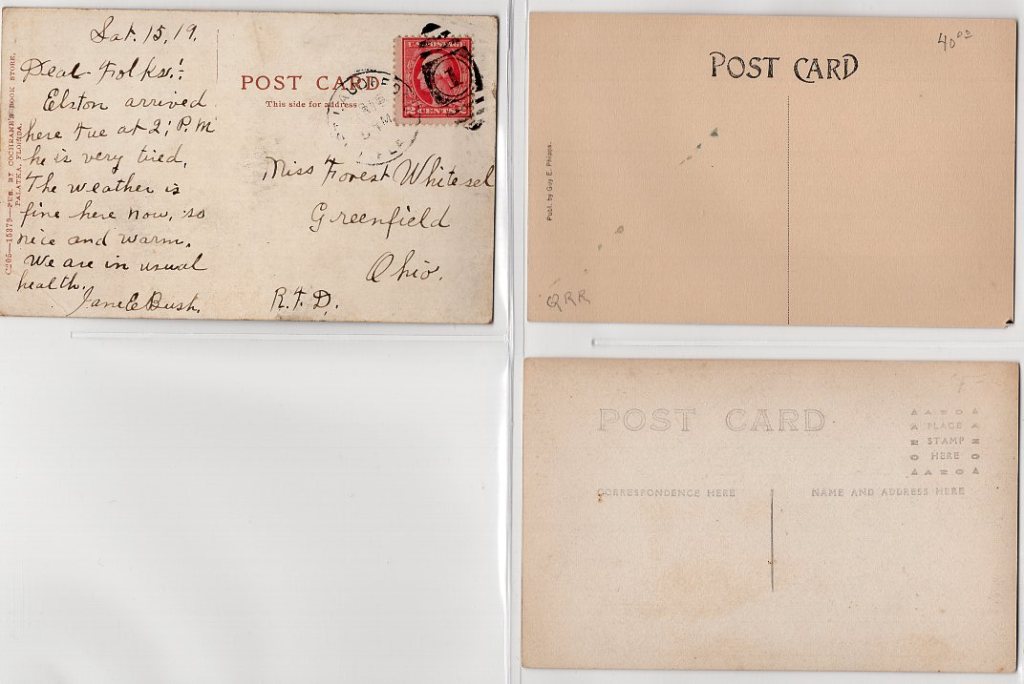 Sat. 15, 19.
Dear Folks:-
Elston arrived
here tue at 2; P.M
he is very tired.
The weather is
fine here now, so
nice and warm.
We are in usual
health.
Jane E Bush.
C205—15379—PUB. BY COCHRANE'S BOOK STORE,
PALATKA, FLORIDA.
POST CARD
This side for address
U.S. POSTAGE
2 CENTS 2
1
Miss Forest Whitesel
Greenfield
Ohio.
R.F.D.
POST CARD
40 00
Publ. by Guy E. Phipps.
QRR
POST CARD
PLACE
STAMP
HERE
CORRESPONDENCE HERE
NAME AND ADDRESS HERE